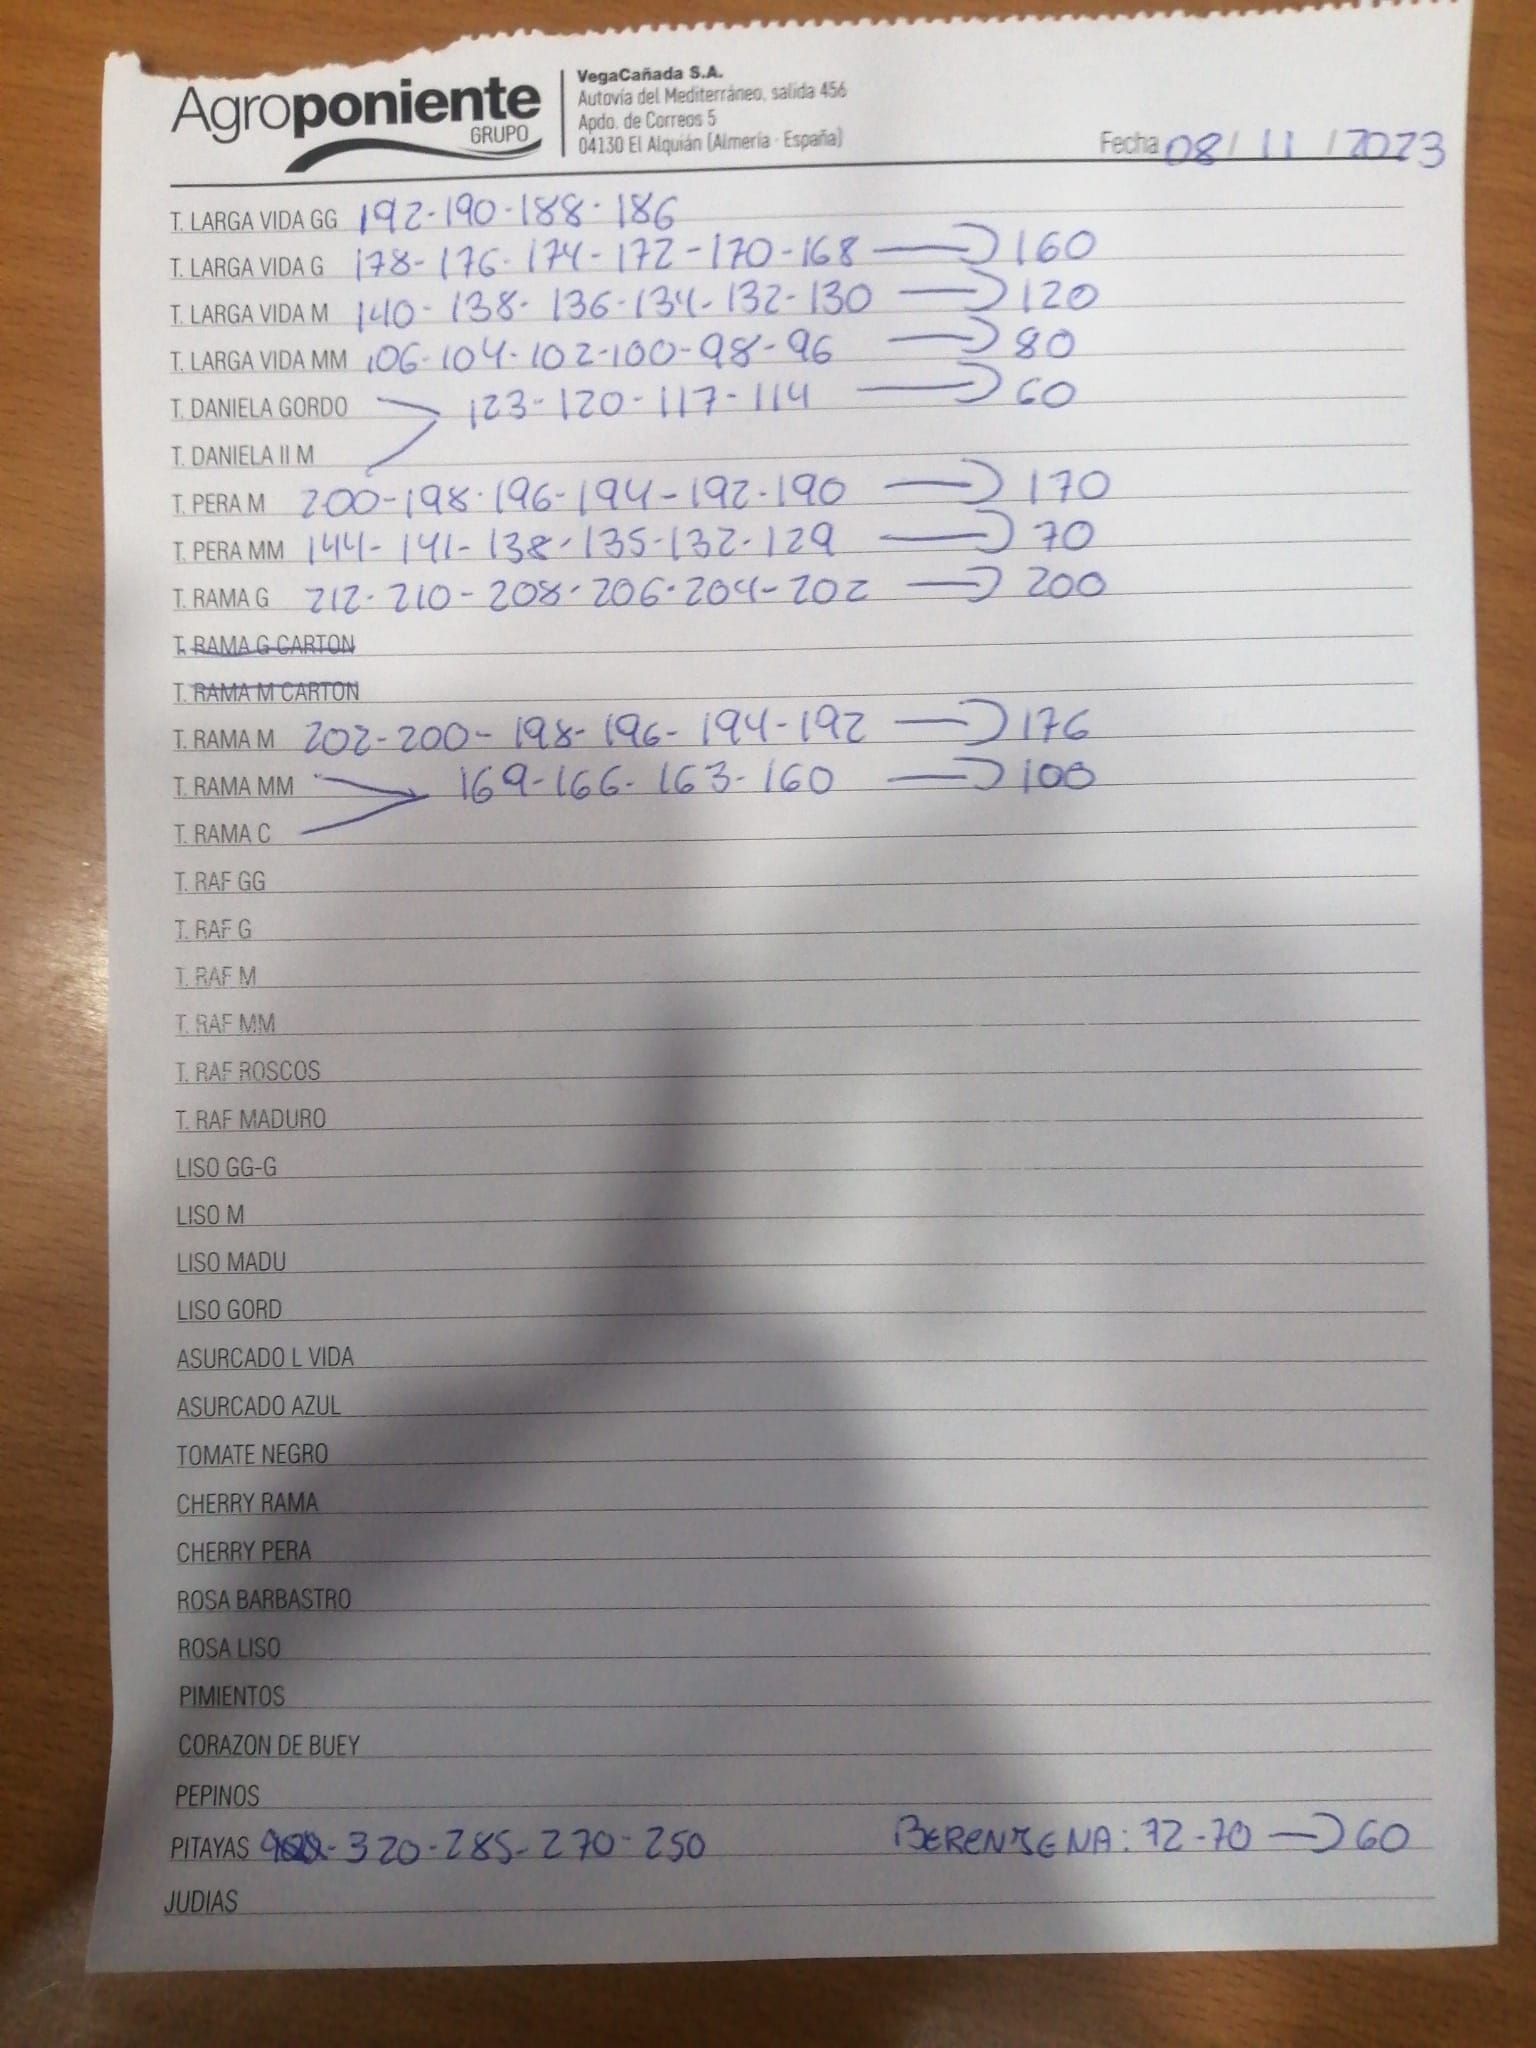 Agroponiente
GRUPO
VegaCañada S.A.
Autovía del Mediterráneo, salida 456
Apdo. de Correos 5
04130 El Alquián (Almería - España)
Fecha 08/11/2023
T. LARGA VIDA GG 192-190-188-186
T. LARGA VIDA G 178-176-174-172-170-168 → 160
T. LARGA VIDA M 140-138-136-134-132-130 → 120
T. LARGA VIDA MM 106-104-102-100-98-96 → 80
T. DANIELA GORDO 123-120-117-114 → 60
T. DANIELA II M
T. PERA M 200-198-196-194-192-190 → 170
T. PERA MM 144-141-138-135-132-129 → 70
T. RAMA G 212-210-208-206-204-202 → 200
T. RAMA G CARTON
T. RAMA M CARTON
T. RAMA M 202-200-198-196-194-192 → 176
T. RAMA MM 169-166-163-160 → 100
T. RAMA C
T. RAF GG
T. RAF G
T. RAF M
T. RAF MM
T. RAF ROSCOS
T. RAF MADURO
LISO GG-G
LISO M
LISO MADU
LISO GORD
ASURCADO L VIDA
ASURCADO AZUL
TOMATE NEGRO
CHERRY RAMA
CHERRY PERA
ROSA BARBASTRO
ROSA LISO
PIMIENTOS
CORAZON DE BUEY
PEPINOS
PITAYAS -320-285-270-250 BERENJENA: 72-70 → 60
JUDIAS